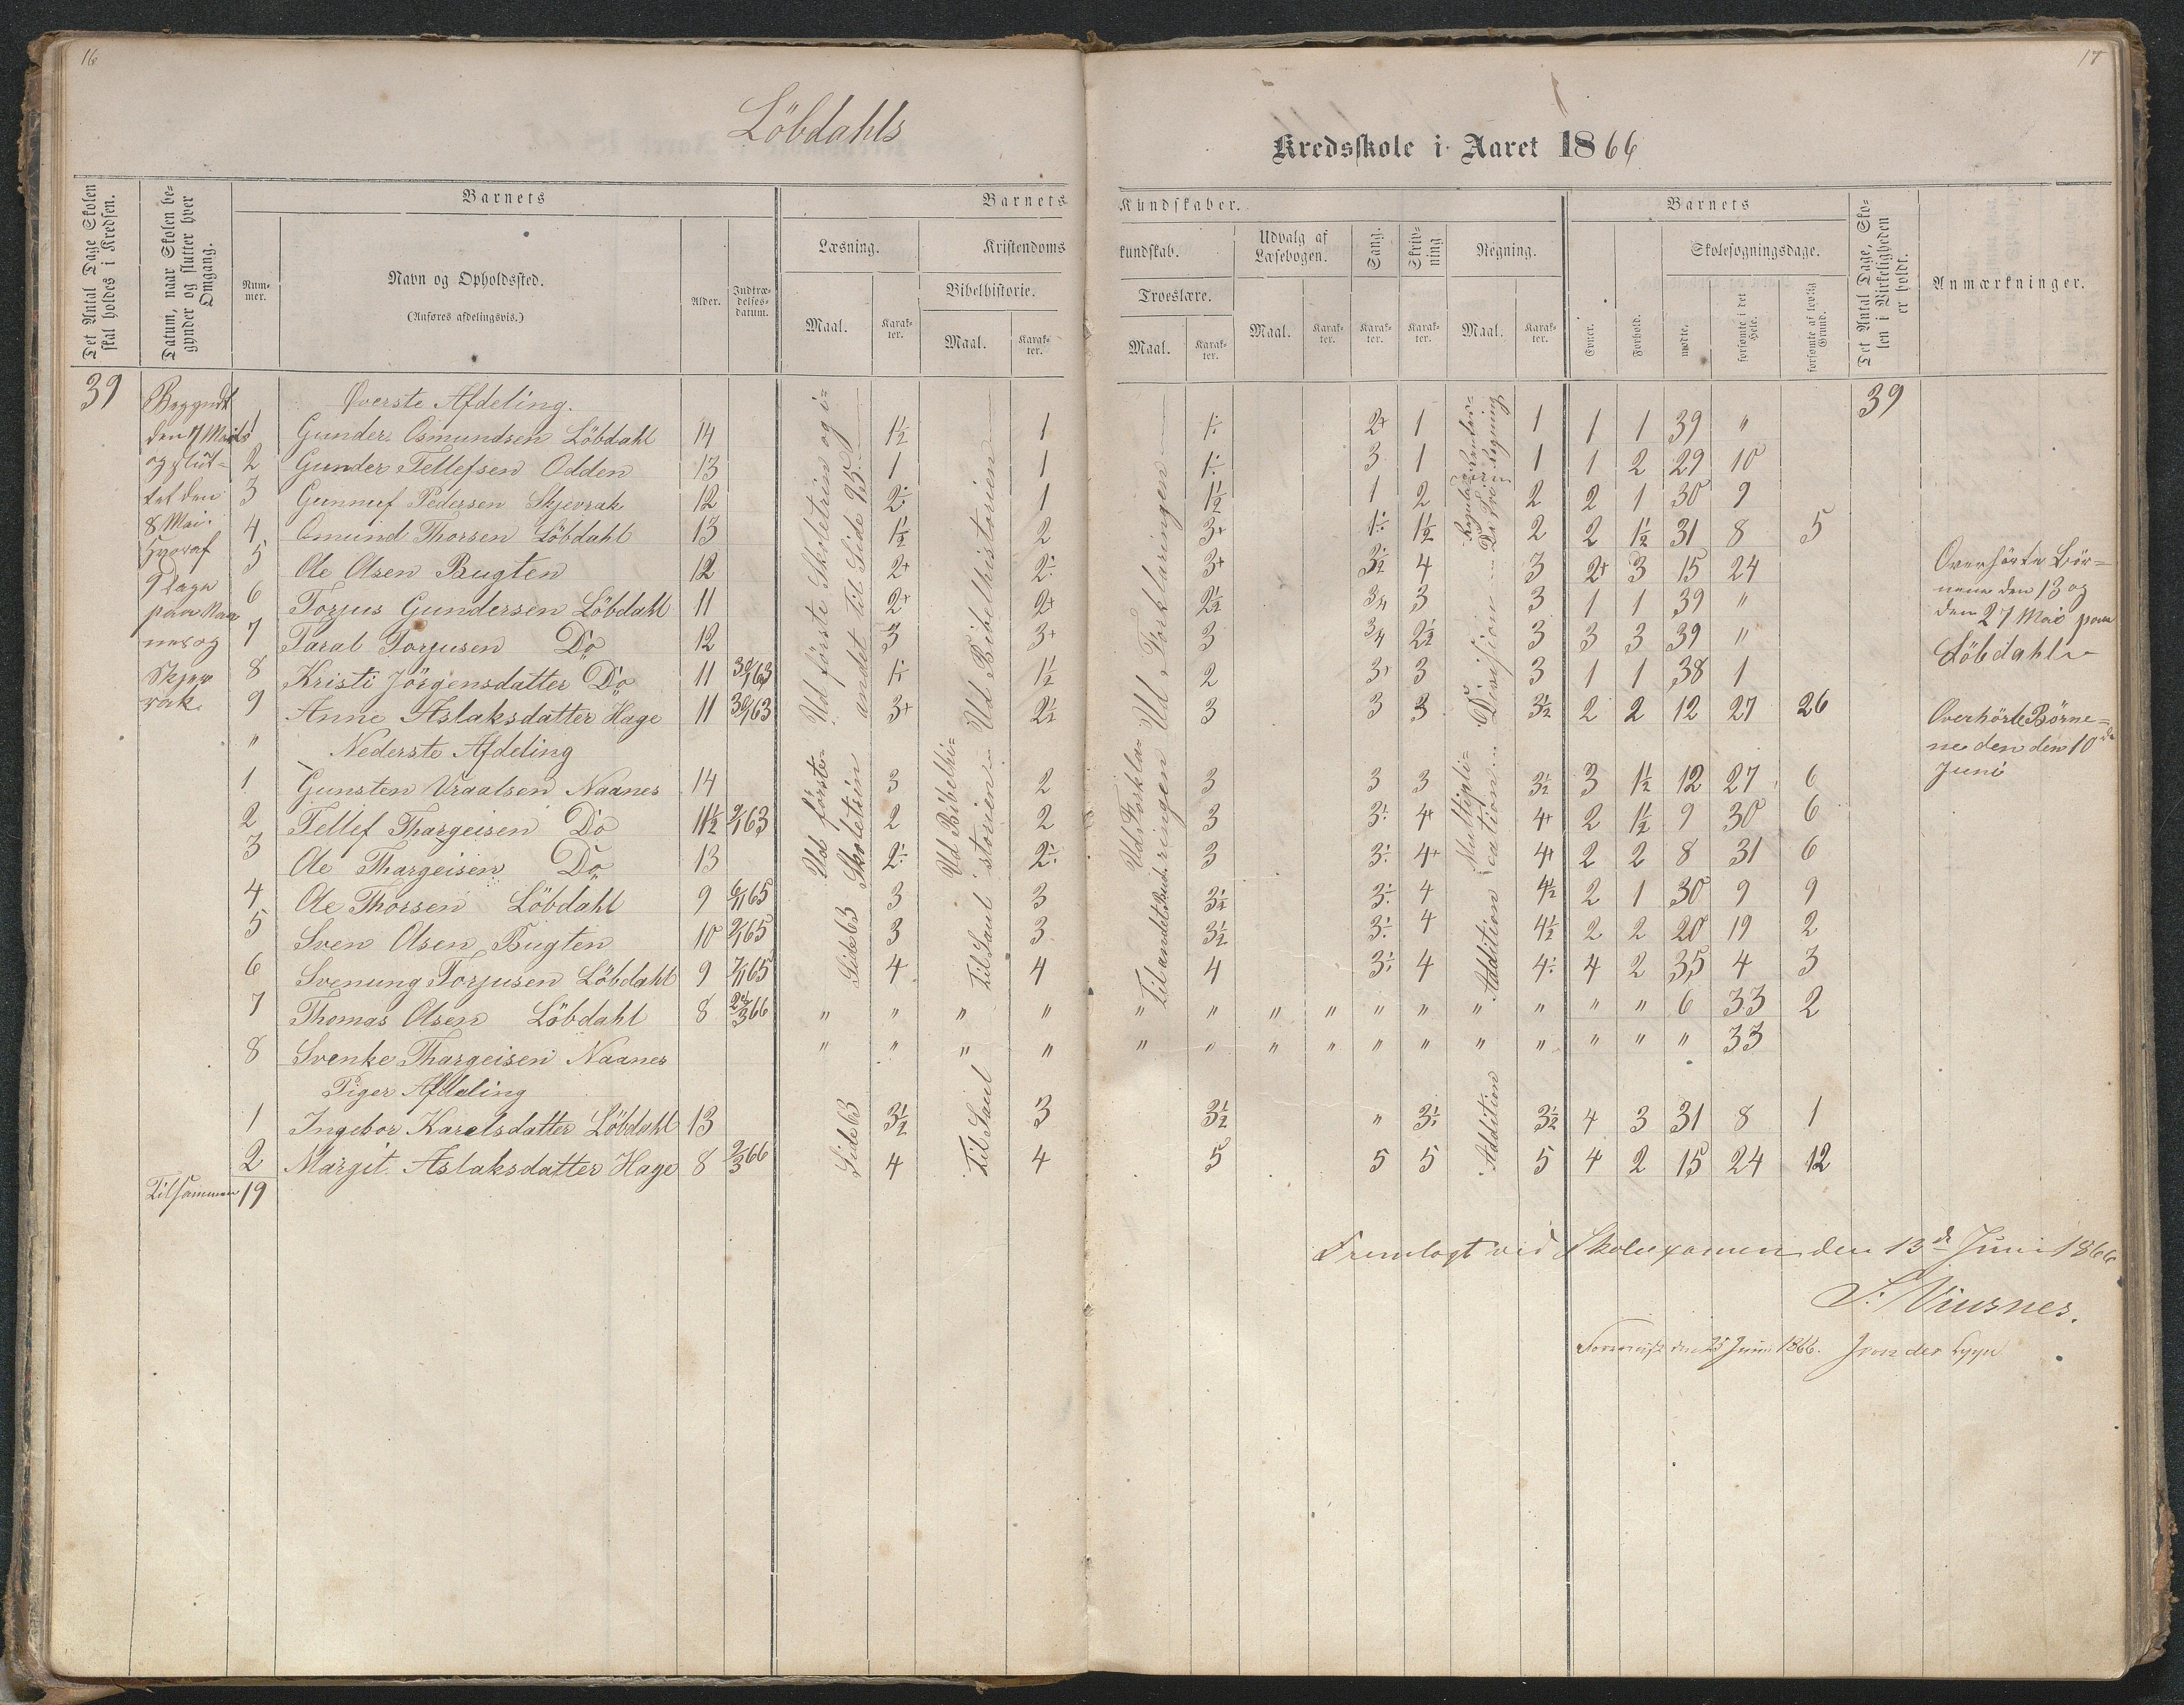 16
17
Löbdahls
Kredsskole i Aaret 1866
Det Antal Dage Skolen skal holdes i Kredsen.
Datum, naar Skolen begynder og slutter hver Omgang.
Barnets
Nummer.
Navn og Opholdssted.
(Anføres afdelingsvis.)
Alder.
Indtrædelsesdatum.
Barnets
Kundskaber.
Læsning.
Maal.
Karakter.
Kristendoms
kundskab.
Bibelhistorie.
Maal.
Karakter.
Troeslære.
Maal.
Karakter.
Udvalg af Læsebogen.
Maal.
Karakter.
Sang.
Karakter.
Skrivning
Karakter.
Regning.
Maal.
Karakter.
Barnets
Evner.
Forhold.
Skolesøgningsdage.
mødte.
forsømte i det Hele.
forsømte af lovlig Grund.
Det Antal Dage, Skolen i Virkeligheden er holdt.
Anmærkninger.
39
Begyndt
den 7 Mai
og slut-
tet den
8 Mai.
Hvoraf
9 Dage
paa Naa
nes og
Skjev
rak.
Överste Afdeling.
39
1 Gunder Osmundsen Löbdahl 14 1½ 1 1÷ 2+ 1 1 1 1 39 "
2 Gunder Tellefsen Odden 13 1 1 1÷ 3 1 1 1 2 29 10
3 Gunnuf Pedersen Skjevrak 12 2÷ 1 1½ 1 2 2 2 1 30 9
4 Omund Thorsen Löbdahl 13 1½ 2 3+ 1÷ 1½ 2 2 1½ 31 8 5
5 Ole Olsen Bugten 12 2+ 2÷ 3+ 3½ 4 3 2+ 3 15 24
6 Torjus Gundersen Löbdahl 11 2+ 2+ 2½ 3/4 3 3 1 1 39 "
7 Taral Torjusen Do 12 3 3+ 3 3/4 2½ 3 3 3 39 "
8 Kristi Jörgensdatter Do 11 1÷ 1½ 2 3+ 3 3 1 1 38 1
9 Anne Aslaksdatter Hage 11 3+ 2½ 3 3 3 3½ 2 2 12 27 26
Ud förste Skoletrin og i andet til Side 95
Ud Bibelhistorien
Ud Forklaringen
Division
" Nederste Afdeling
1 Gunsten Vraalsen Naanes 14 3 2 3 3 3 3½ 3 1½ 12 27 6
2 Tellef Thargeisen Do 11½ 2 2 3 3÷ 4+ 4+ 2 1½ 9 30 6
3 Ole Thargeisen Do 13 2÷ 2÷ 3 3÷ 4+ 4+ 2 2 8 31 6
4 Ole Thorsen Löbdahl 9 6/1 65 3 3 3½ 3÷ 4 4½ 2 1 30 9 9
5 Sven Olsen Bugten 10 3 3 3½ 3÷ 4 4½ 2 2 20 19 2
6 Svenung Torjusen Löbdahl 9 7/1 65 4 4 4 3÷ 4 4÷ 4 2 35 4 3
7 Thomas Olsen Löbdahl 8 " " " " " " " " " " " " " " 6 33 2
8 Svenke Thargeisen Naanes " " " " " " " " " " " " " " " 33
Ud förste Skoletrin
Side 63
Ud Bibelhistorien
Til Saul
Ud Forklaringen
Til andet Bud
Multiplication
Addition
Piger Afdeling
1 Ingebor Karelsdatter Löbdahl 13 Side 63 3½ Til Saul 3 3½ " 3÷ Addition 3½ 4 3 31 8 1
2 Margit Aslaksdatter Hage 8 2/3 66 4 4 5 5 5 5 4 2 15 24 12
Tilsammen 19
Overhörte Bör-
nene den 13 og
den 27 Mai paa
Löbdahl
Overhörte Börne-
ne den den 10de
Juni
Fremlagt ved Skoleexamen den 13de Juni 1866
S. Viusnes.
Foreviist den 25 Juni 1866.